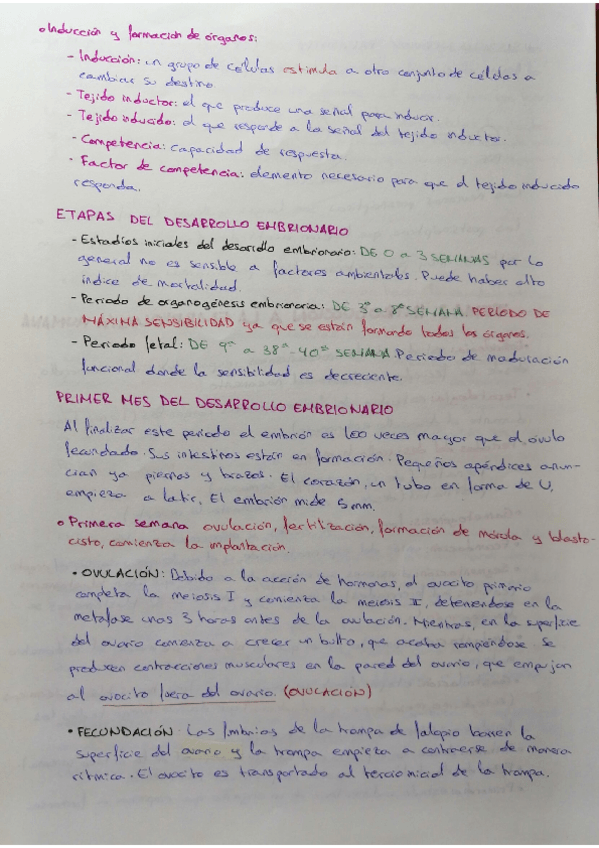 • Inducción y formación de órganos:
- Inducción: un grupo de células estimula a otro conjunto de células a
cambiar su destino
- Tejido inductor: el que produce una señal para inducir.
- Tejido inducido: el que responde a la señal del tejido inductor.
- Competencia: capacidad de respuesta.
- Factor de competencia: elemento necesario para que el tejido inducido
responda.
ETAPAS DEL DESARROLLO EMBRIONARIO
- Estadíos iniciales del desarrollo embrionario: DE 0 a 3 SEMANAS por lo
general no es sensible a factores ambientales. Puede haber alto
índice de mortalidad.
- Periodo de organogénesis embrionaria: DE 3ª a 8ª SEMANA PERIODO DE
MÁXIMA SENSIBILIDAD ya que se están formando todos los órganos.
- Periodo fetal: DE 9ª a 38ª-40ª SEMANA Periodo de maduración
funcional donde la sensibilidad es decreciente.
PRIMER MES DEL DESARROLLO EMBRIONARIO
Al finalizar este periodo el embrión es 100 veces mayor que el óvulo
fecundado. Sus intestinos están en formación. Pequeños apéndices anun-
cian ya piernas y brazos. El corazón, un tubo en forma de U,
empieza a latir. El embrión mide 5mm.
• Primera semana ovulación, fertilización, formación de mórula y blasto-
cisto, comienza la implantación.
• OVULACIÓN: Debido a la acción de hormonas, el ovocito primario
completa la meiosis I y comienza la meiosis II, deteniendose en la
metafase unas 3 horas antes de la ovulación. Mientras, en la superficie
del ovario comienza a crecer un bulto, que acaba rompiéndose. Se
producen contracciones musculares en la pared del ovario, que empujan
al ovocito fuera del ovario. (OVULACIÓN)
• FECUNDACIÓN: Las fimbrias de la trompa de falopio barren la
superficie del ovario y la trompa empieza a contraerse de manera
rítmica. El ovocito es transportado al tercio inicial de la trompa.